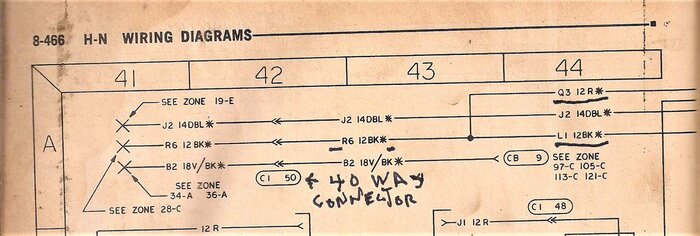 8-466 H-N WIRING DIAGRAMS
41 42 43 44
A
Q3 12 R*
SEE ZONE 19-E
J2 14DBL* J2 14DBL*
R6 12BK* R6 12BK* L1 12BK*
B2 18V/BK* B2 18V/BK* CB 9 SEE ZONE
97-C 105-C
113-C 121-C
SEE ZONE
34-A 36-A
C1 50 ← 40 WAY
CONNECTOR
SEE ZONE 28-C
C1 48
12 R J1 12 R